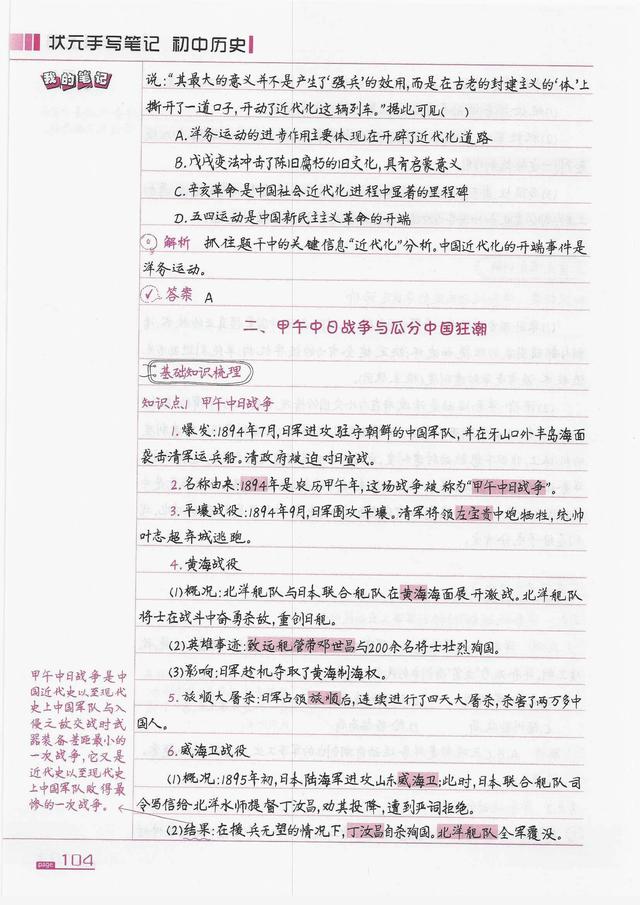 状元手写笔记 初中历史
我的笔记
说:“其最大的意义并不是产生了‘强兵’的效用,而是在古老的封建主义的‘体’上
撕开了一道口子,开动了近代化这辆列车。”据此可见( )
A.洋务运动的进步作用主要体现在开辟了近代化道路
B.戊戌变法冲击了陈旧腐朽的旧文化,具有启蒙意义
C.辛亥革命是中国社会近代化进程中显著的里程碑
D.五四运动是中国新民主主义革命的开端
解析 抓住题干中的关键信息“近代化”分析。中国近代化的开端事件是
洋务运动。
答案 A
二、甲午中日战争与瓜分中国狂潮
基础知识梳理
知识点1 甲午中日战争
1.爆发:1894年7月,日军进攻驻守朝鲜的中国军队,并在牙山口外丰岛海面
袭击清军运兵船。清政府被迫对日宣战。
2.名称由来:1894年是农历甲午年,这场战争被称为“甲午中日战争”。
3.平壤战役:1894年9月,日军围攻平壤。清军将领左宝贵中炮牺牲,统帅
叶志超弃城逃跑。
4.黄海战役
(1)概况:北洋舰队与日本联合舰队在黄海海面展开激战。北洋舰队
将士在战斗中奋勇杀敌,重创日舰。
(2)英雄事迹:致远舰管带邓世昌与200余名将士壮烈殉国。
(3)影响:日军趁机夺取了黄海制海权。
5.旅顺大屠杀:日军占领旅顺后,连续进行了四天大屠杀,杀害了两万多中
国人。
6.威海卫战役
(1)概况:1895年初,日本陆海军进攻山东威海卫;此时,日本联合舰队司
令写信给北洋水师提督丁汝昌,劝其投降,遭到严词拒绝。
(2)结果:在援兵无望的情况下,丁汝昌自杀殉国。北洋舰队全军覆没。
甲午中日战争是中
国近代史以至现代
史上中国军队与入
侵之敌交战时武
器装备差距最小的
一次战争,它又是
近代史以至现代史
上中国军队败得最
惨的一次战争。
page 104